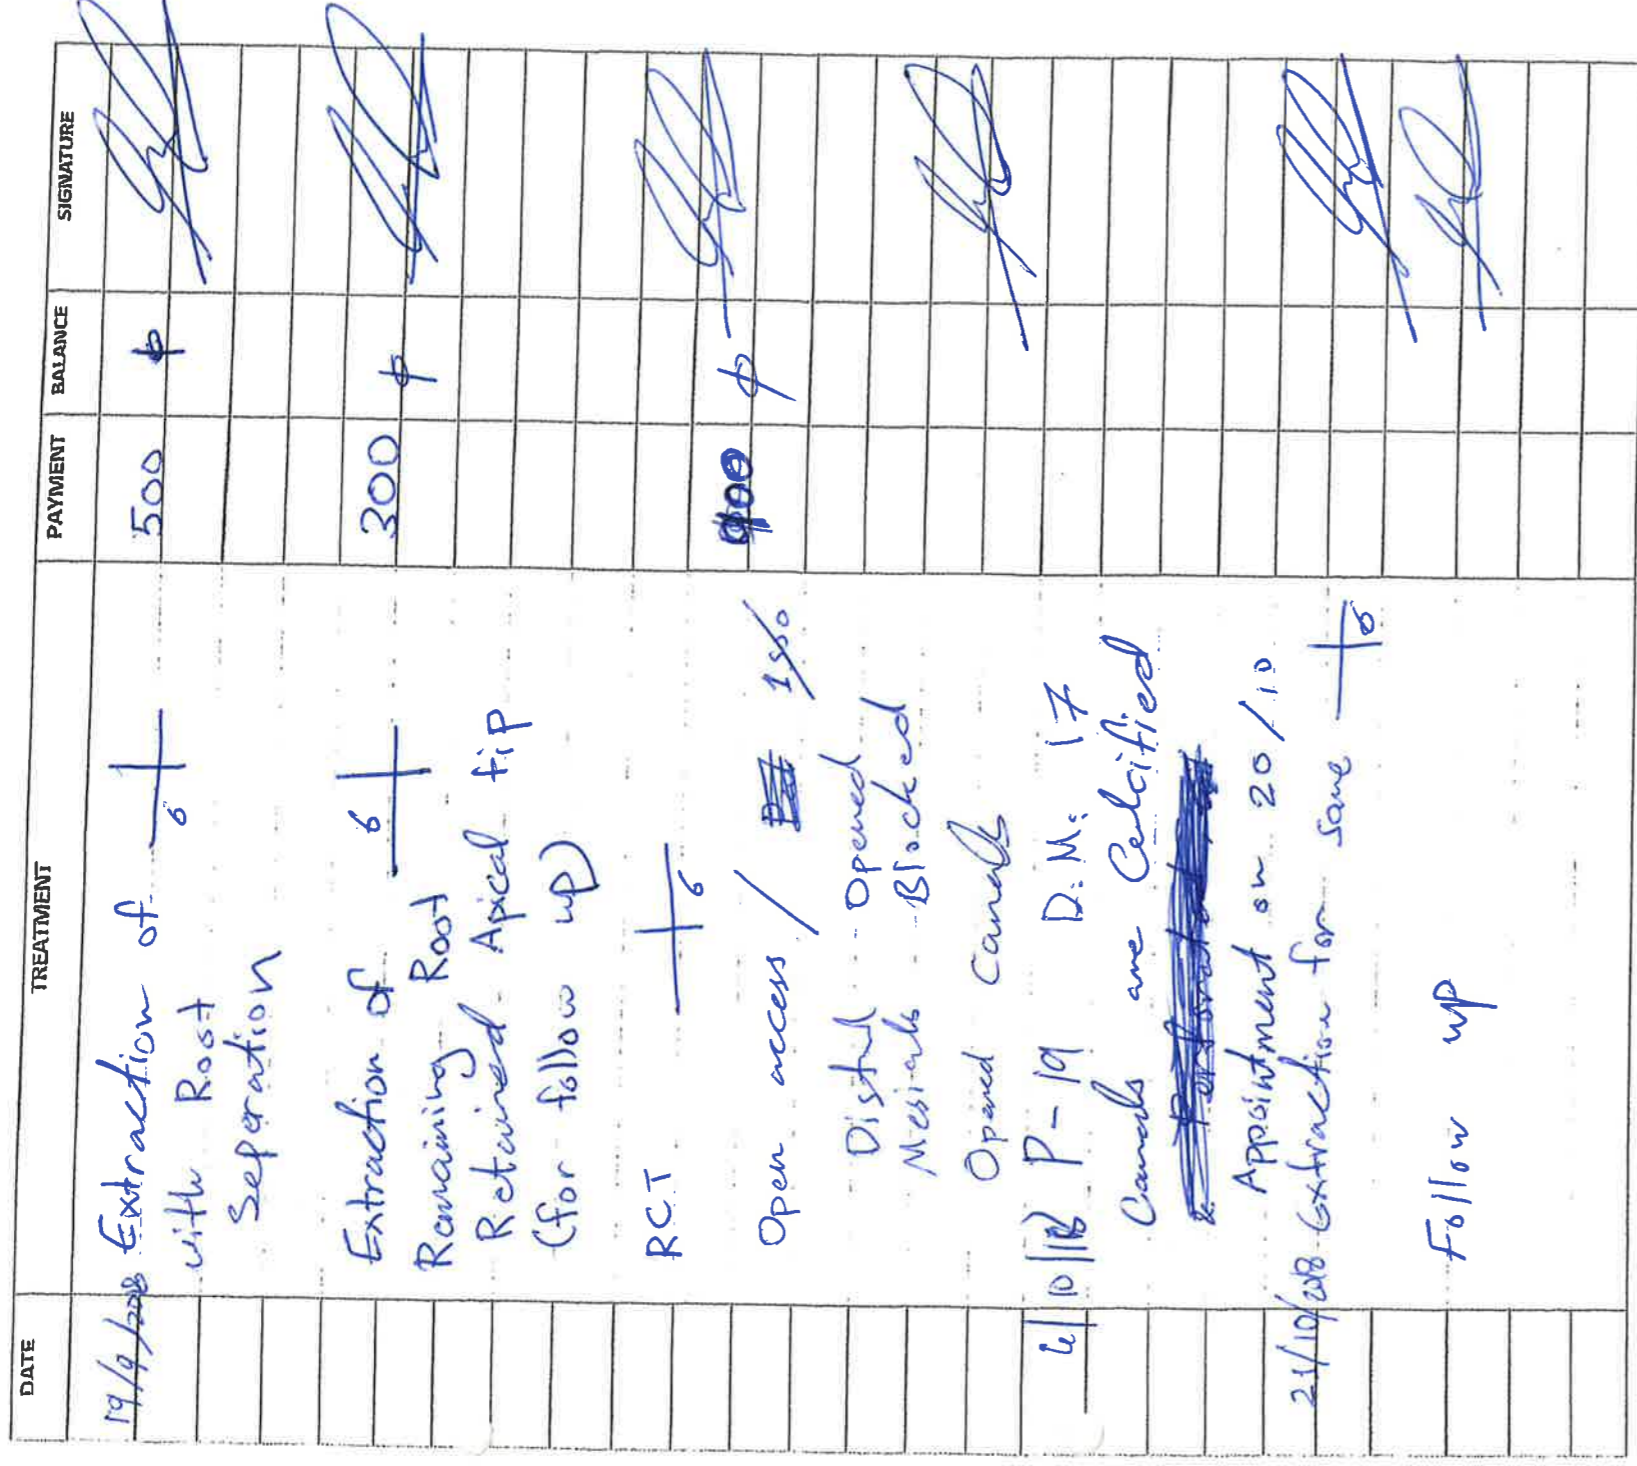 DATE TREATMENT PAYMENT BALANCE SIGNATURE
19/9/2018 Extraction of 6 500
with Root
Seperation
Extraction of 6 300
Remaining Root
Retained Apical tip
(for follow up)
RCT 6
Open access /
Distal Opened
Mesials Blocked
Opened Canals
10/18 P-19 D.M: 17
Canals are Calcified
Appointment on 20/10
21/10/2018 Extraction for same 6
Follow up